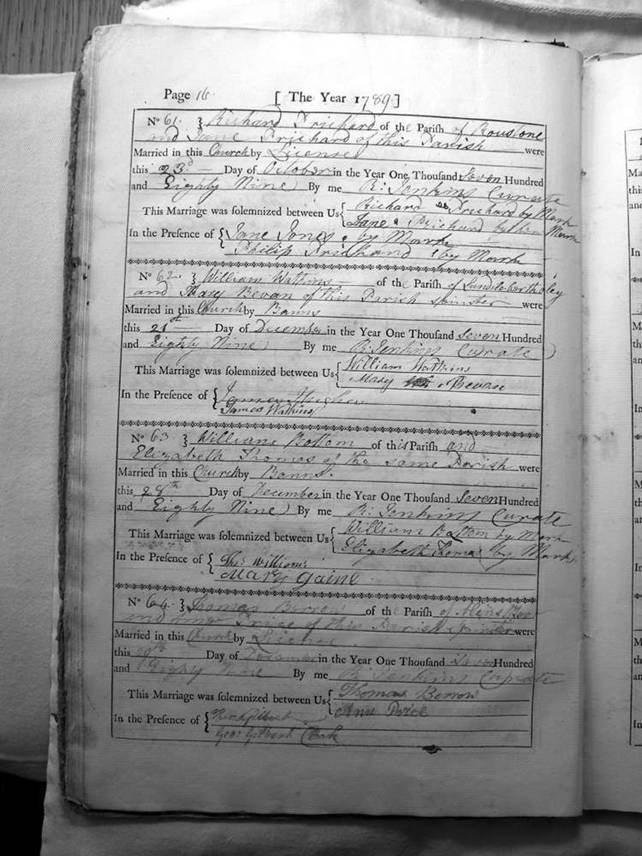 Page 16 [ The Year 1789 ]
No 61. } Richard Prichard of the Parish of Roustone
and Jane Prichard of this Parish were
Married in this Church by License
this 23d Day of October in the Year One Thousand Seven Hundred
and Eighty Nine By me R: Jenkins Curate
This Marriage was solemnized between Us { Richard Prichard by Mark
Jane Prichard by her Mark
In the Presence of { Jane Jones by Mark
Philip Prichard by Mark
No 62. } William Watkins of the Parish of
and Mary Bevan of this Parish Spinster were
Married in this Church by Banns
this 21st Day of December in the Year One Thousand Seven Hundred
and Eighty Nine By me R: Jenkins Curate
This Marriage was solemnized between Us { William Watkins
Mary Bevan
In the Presence of {
James Watkins
No 63 } William Bottom of this Parish and
Elizabeth Thomas of the same Parish were
Married in this Church by Banns.
this 28th Day of December in the Year One Thousand Seven Hundred
and Eighty Nine By me R: Jenkins Curate
This Marriage was solemnized between Us { William Bottom by Mark
Elizabeth Thomas by Mark
In the Presence of { Thos Williams
Mary Gaine
No 64. } Thomas Berrow of the Parish of
and Price of this Parish Spinster were
Married in this Church by
this Day of December in the Year One Thousand Seven Hundred
and Eighty Nine By me R: Jenkins Curate
This Marriage was solemnized between Us { Thomas Berrow
Ann Price
In the Presence of {
Geo: Gilbert Clerk